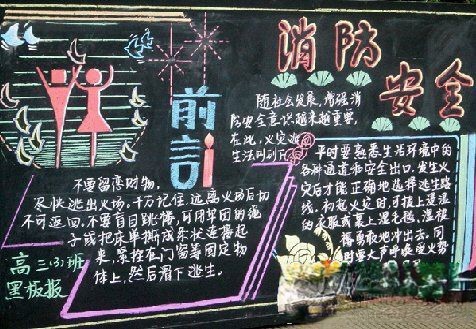 消防
安全
前言
随社会发展,增强消
防安全意识越来越重要。
在此,火灾逃
生活叫刊
不要留恋财物。
尽快逃出火场,千万记住,逃离火场后切
不可返回。不要盲目跳楼,可用牢固的绳
子或把床单撕成条状连接起
来,紧拴在门窗等固定物
体上,然后滑下逃生。
平时要熟悉生活环境中的
各种通道和安全出口,发生火
灾后才能正确地选择逃生路
线。初起火灾时,可披上浸湿
的衣服或裹上湿毛毯、湿棉
褥勇敢地冲出去。同
时要大声呼唤
火势
高三(3)班
黑板报